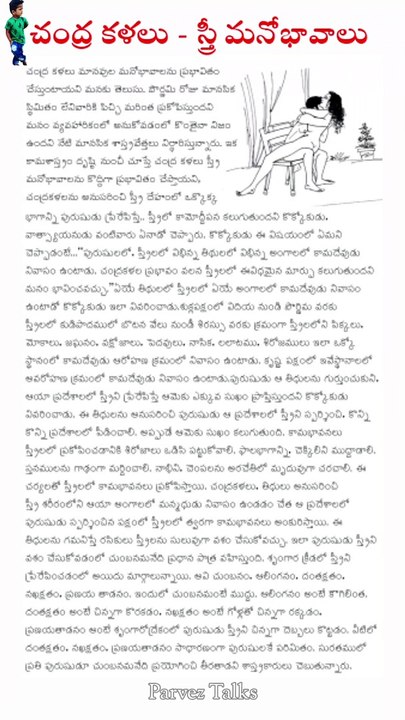 చంద్ర కళలు - స్త్రీ మనోభావాలు
చంద్ర కళలు మానవుల మనోభావాలను ప్రభావితం
చేస్తుంటాయని మనకు తెలుసు. పౌర్ణమి రోజు మానసిక
స్థిమితం లేనివారికి పిచ్చి మరింత ప్రకోపిస్తుందని
మనం వ్యవహారికంలో అనుకోవడంలో కొంతైనా నిజం
ఉందని నేటి మానసిక శాస్త్రవేత్తలు నిర్ధారిస్తున్నారు. ఇక
కామశాస్త్రం దృష్టి నుంచి చూస్తే చంద్ర కళలు స్త్రీ
మనోభావాలను కొద్దిగా ప్రభావితం చేస్తాయని,
చంద్రకళలను అనుసరించి స్త్రీ దేహంలో ఒక్కొక్క
భాగాన్ని పురుషుడు ప్రేరేపిస్తే.. స్త్రీలో కామోద్దీపన కలుగుతుందని కొక్కోకుడు,
వాత్స్యాయనుడు వంటివారు ఏనాడో చెప్పారు. కొక్కోకుడు ఈ విషయంలో ఏమని
చెప్పాడంటే..."పురుషులలో, స్త్రీలలో విభిన్న తిథులలో విభిన్న అంగాలలో కామదేవుడు
నివాసం ఉంటాడు. చంద్రకళల ప్రభావం వలన స్త్రీలలో ఈవిధమైన మార్పు కలుగుతుందని
మనం భావించవచ్చు."ఏయే తిథులలో స్త్రీలలో ఏయే అంగాలలో కామదేవుడు నివాసం
ఉంటాడో కొక్కోకుడు ఇలా వివరించాడు.శుక్లపక్షంలో విదియ నుండి పౌర్ణమి వరకు
స్త్రీలలో కుడిపాదములో బొటన వేలు నుండీ శిరస్సు వరకు క్రమంగా స్త్రీలలోని పిక్కలు,
మోకాలు, జఘనం, వక్షోజాలు, పెదవులు, నాసిక, లలాటము, శిరోజములు ఇలా ఒక్కో
స్థానంలో కామదేవుడు ఆరోహణ క్రమంలో నివాసం ఉంటాడు. కృష్ణ పక్షంలో ఇవేస్థానాలలో
అవరోహణ క్రమంలో కామదేవుడు నివాసం ఉంటాడు.పురుషుడు ఆ తిథులను గుర్తుంచుకుని,
ఆయా ప్రదేశాలలో స్త్రీని ప్రేరేపిస్తే ఆమెకు ఎక్కువ సుఖం ప్రాప్తిస్తుందని కొక్కోకుడు
వివరించాడు. ఈ తిథులను అనుసరించి పురుషుడు ఆ ప్రదేశాలలో స్త్రీని స్పర్శించి, కొన్ని
కొన్ని ప్రదేశాలలో పీడించాలి. అప్పుడే ఆమెకు సుఖం కలుగుతుంది. కామభావనలు
స్త్రీలలో ప్రకోపించడానికి శిరోజాలు ఒడిసి పట్టుకోవాలి. ఫాలభాగాన్ని, చెక్కిలిని ముద్దాడాలి.
స్తనములను గాఢంగా మర్దించాలి. నాభిని, చెంపలను అరచేతిలో మృదువుగా చరచాలి. ఈ
చర్యలతో స్త్రీలలో కామభావనలు ప్రకోపిస్తాయి. చంద్రకళలు, తిథులు అనుసరించి
స్త్రీ శరీరంలోని ఆయా అంగాలలో మన్మధుడు నివాసం ఉండడం చేత ఆ ప్రదేశాలలో
పురుషుడు స్పర్శించిన పక్షంలో స్త్రీలలో త్వరగా కామభావనలు అంకురిస్తాయి. ఈ
తిథులను గమనిస్తే రసికులు స్త్రీలను సులువుగా వశం చేసుకోవచ్చు. ఇలా పురుషుడు స్త్రీని
వశం చేసుకోవడంలో చుంబనమనేది ప్రధాన పాత్ర వహిస్తుంది. శృంగార క్రీడలో స్త్రీని
ప్రేరేపించడంలో అయిదు మార్గాలున్నాయి. అవి చుంబనం, ఆలింగనం, దంతక్షతం,
నఖక్షతం, ప్రణయ తాడనం. ఇందులో చుంబనమంటే ముద్దు, ఆలింగనం అంటే కౌగిలింత,
దంతక్షతం అంటే చిన్నగా కొరకడం, నఖక్షతం అంటే గోళ్లతో చిన్నగా రక్కడం,
ప్రణయతాడనం అంటే శృంగారోద్రేకంలో పురుషుడు స్త్రీని చిన్నగా దెబ్బలు కొట్టడం. వీటిలో
దంతక్షతం, నఖక్షతం, ప్రణయతాడనం సాధారణంగా పురుషులకే పరిమితం. సురతములో
ప్రతి పురుషుడూ చుంబనమనేది ప్రయోగించి తీరతాడని శాస్త్రకారులు చెబుతున్నారు.
Parvez Talks